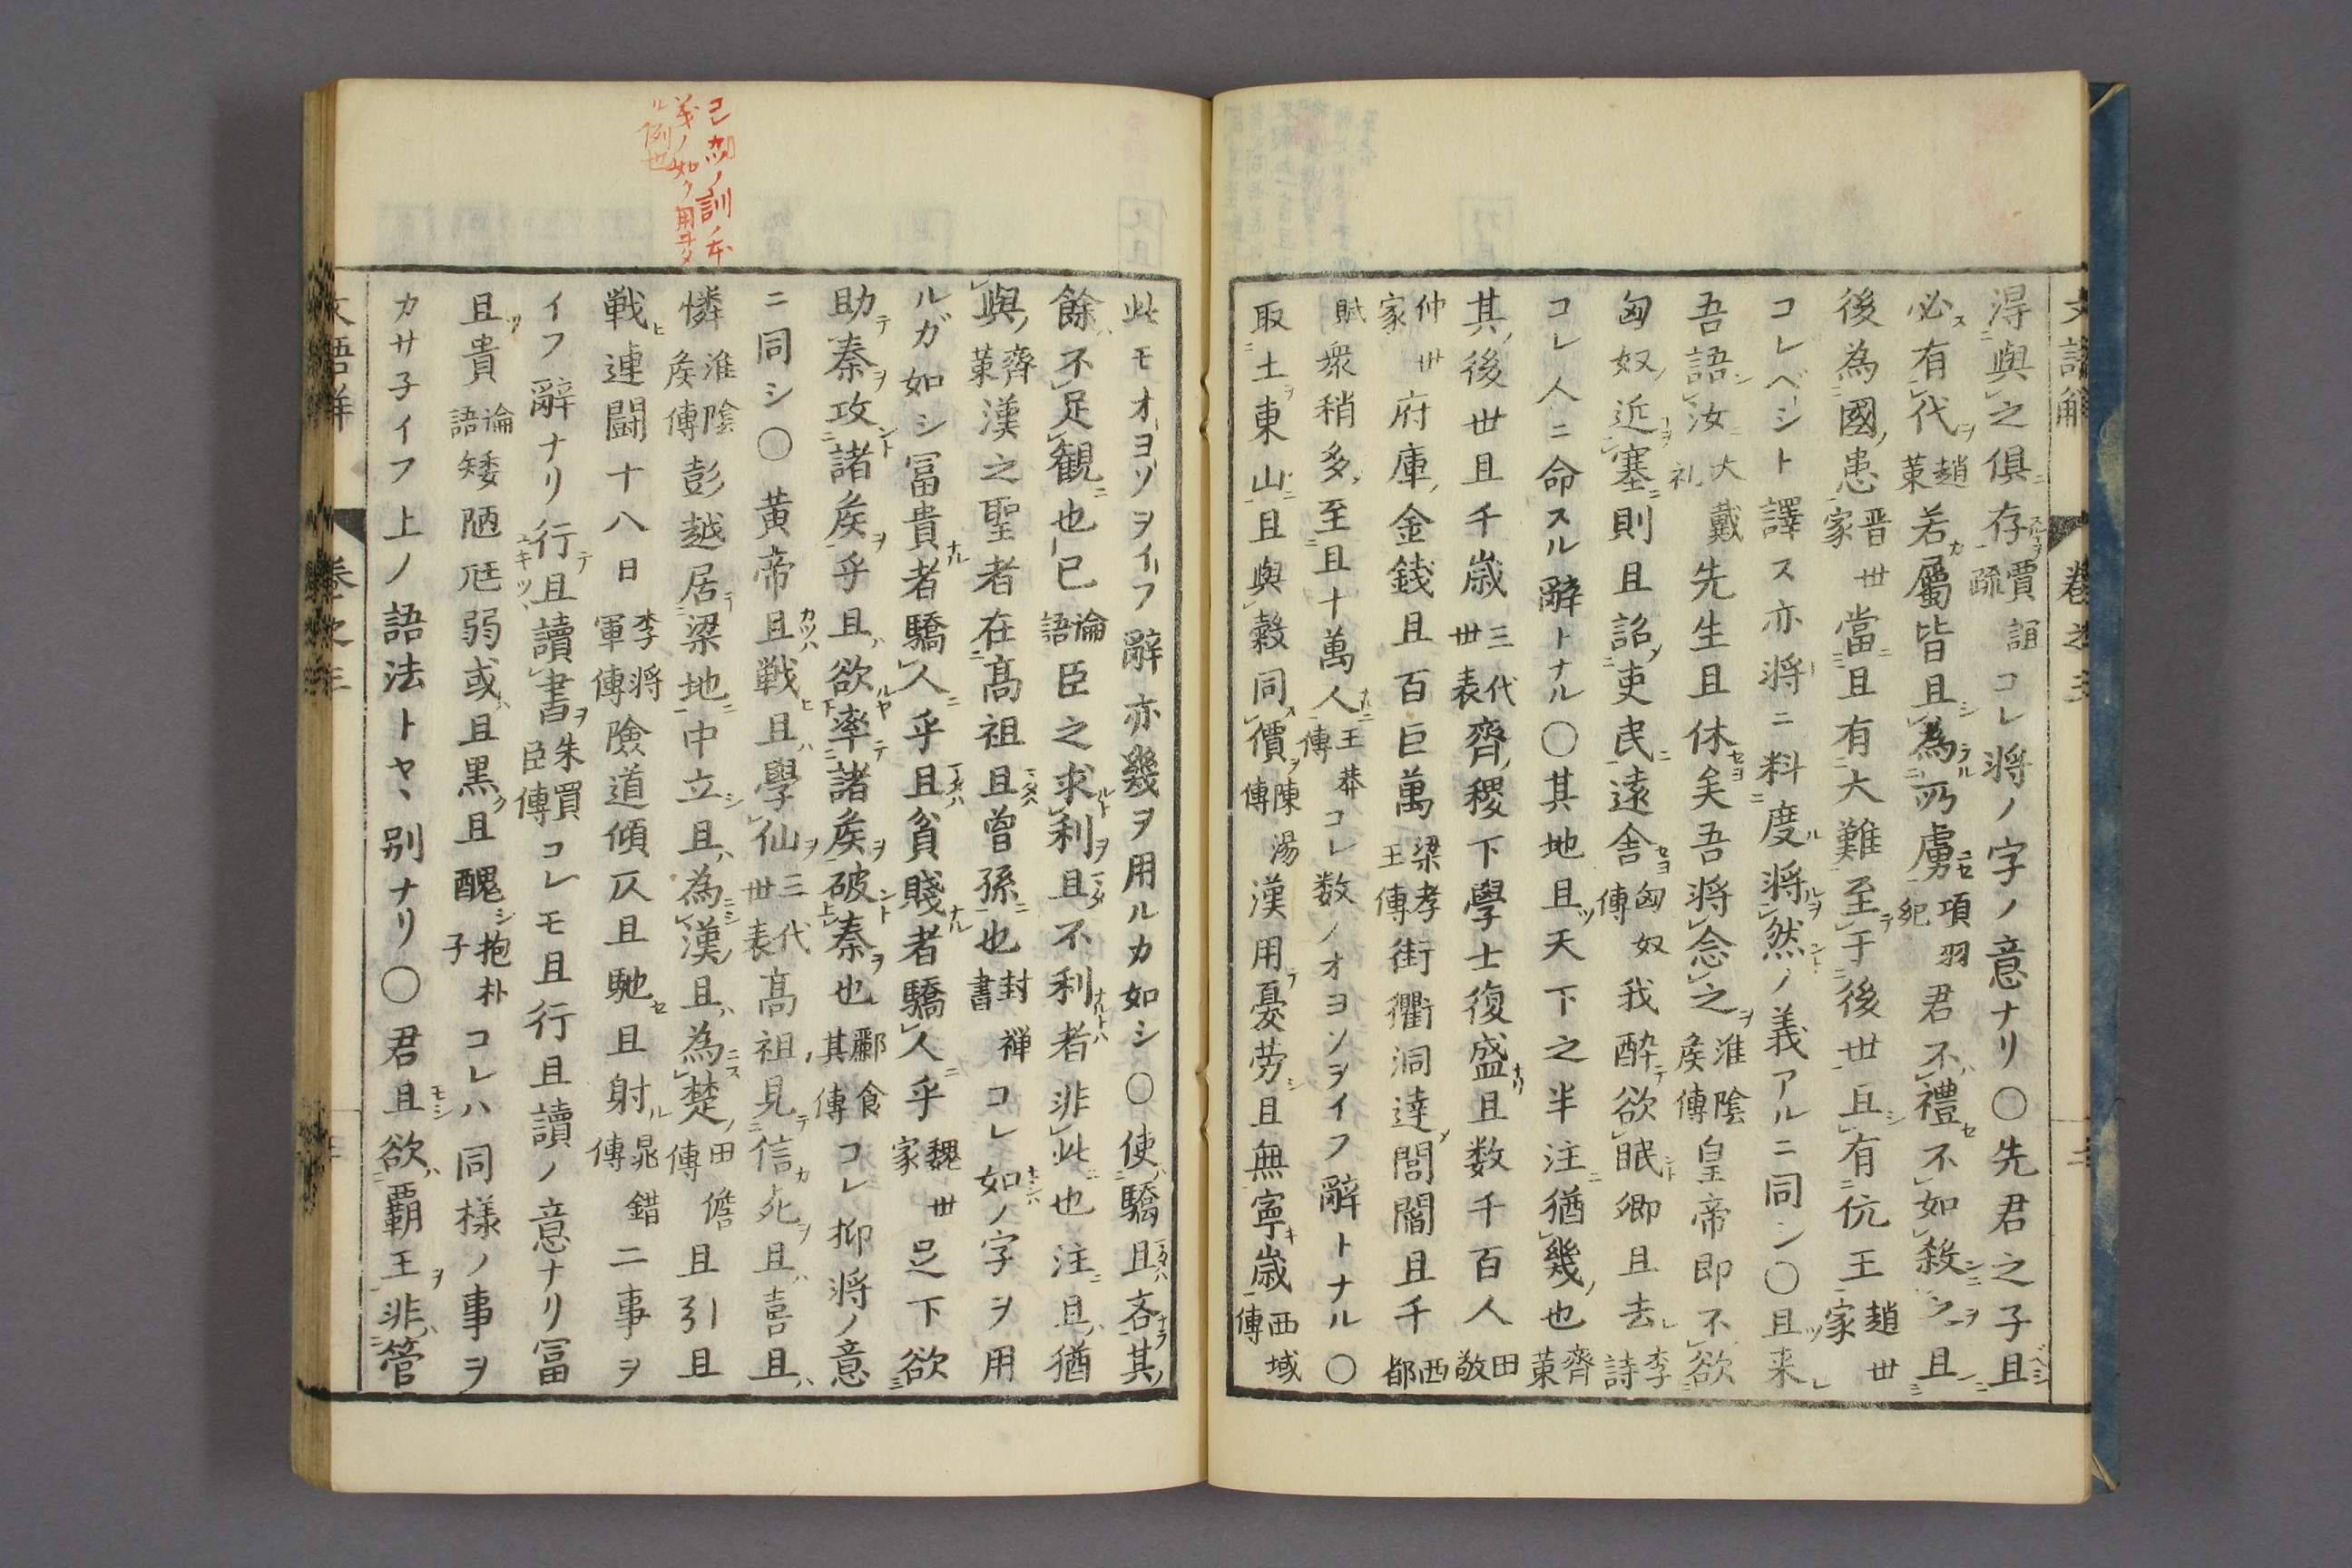 文語解 巻之三
淂與之俱存賈誼疏コレ将ノ字ノ意ナリ〇先君之子且
必有代趙策若屬皆且為所虜項羽紀君不禮不如殺之且
後為國患晋世家當且有大難至于後世且有伉王趙世家
コレベシト譯ス亦将ニ料度ル将然ノ義アルニ同シ〇且来
吾語汝大戴礼先生且休矣吾將念之淮陰矦傳皇帝即不欲
匈奴近塞則且詔吏民遠舎匈奴傳我酔欲眠卿且去李詩
コレ人ニ命スル辭トナル〇其地且天下之半注猶幾也齊策
其後世且千歳三代世表齊稷下學士復盛且数千百人田敬
仲世家府庫金錢且百巨萬梁孝王傳街衢洞達閭閻且千西都
賦衆稍多至且十萬人王莽傳コレ数ノオヨソヲイフ辭トナル〇
取土東山且與穀同價陳湯傳漢用憂労且無寧歳西域傳
此モオヨソヲイフ辭亦幾ヲ用ルカ如シ〇使驕且吝其
餘不足観也已論語臣之求利且不利者非此也注且猶
與齊策漢之聖者在髙祖且曽孫也封禅書コレ如ノ字ヲ用
ルガ如シ冨貴者驕人乎且貧賤者驕人乎魏世家足下欲
助秦攻諸矦乎且欲率諸矦破秦也酈食其傳コレ抑将ノ意
ニ同シ〇黄帝且戦且學仙三代世表髙祖見信死且喜且
憐淮陰矦傳彭越居梁地中立且為漢且為楚田儋傳且引且
戦連闘十八日李将軍傳險道傾仄且馳且射晁錯傳二事ヲ
イフ辭ナリ行且讀書朱買臣傳コレモ且行且讀ノ意ナリ冨
且貴論語矮陋尫弱或且黒且醜抱朴子コレハ同様ノ事ヲ
カサ子イフ上ノ語法トヤヽ別ナリ〇君且欲覇王非管
文語解 巻之三
コレカツノ訓ノ本
義ノ如ク用ヰタ
ル例也